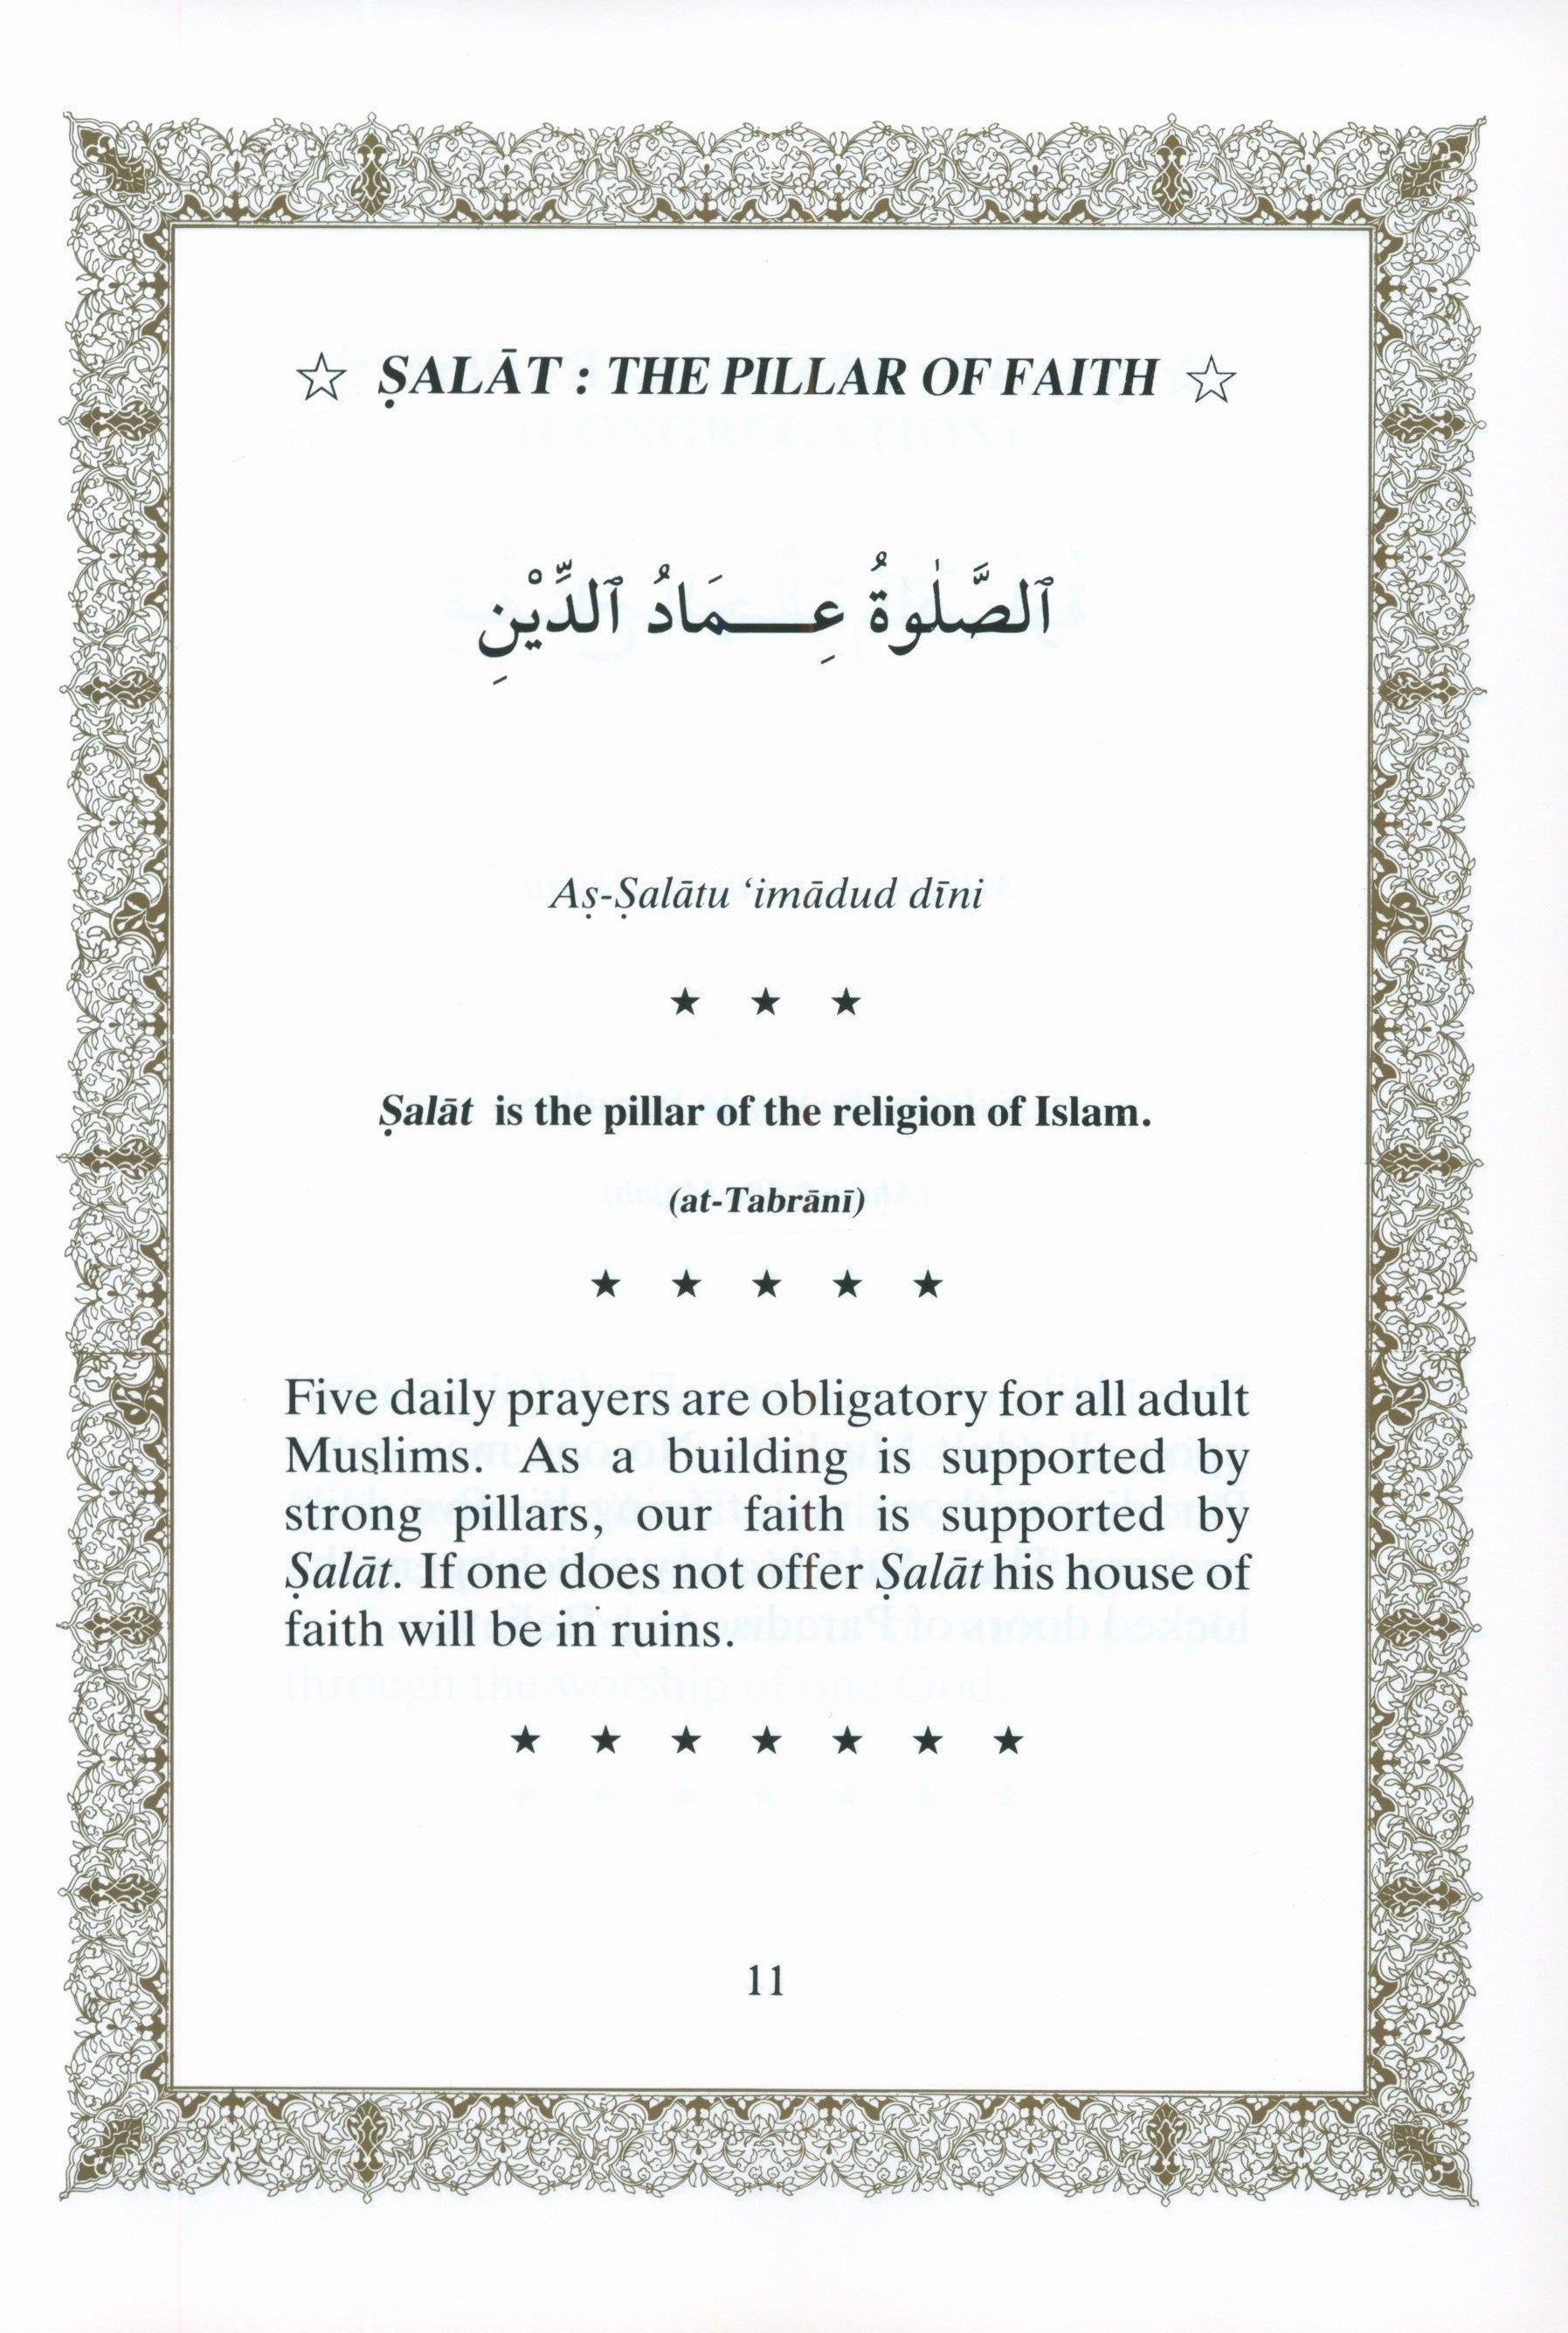 ☆ ṢALĀT : THE PILLAR OF FAITH ☆
ٱلصَّلٰوةُ عِـــمَادُ ٱلدِّيْنِ
Aṣ-Ṣalātu ‘imādud dīni
★ ★ ★
Ṣalāt is the pillar of the religion of Islam.
(at-Tabrānī)
★ ★ ★ ★ ★
Five daily prayers are obligatory for all adult
Muslims. As a building is supported by
strong pillars, our faith is supported by
Ṣalāt. If one does not offer Ṣalāt his house of
faith will be in ruins.
★ ★ ★ ★ ★ ★ ★
11